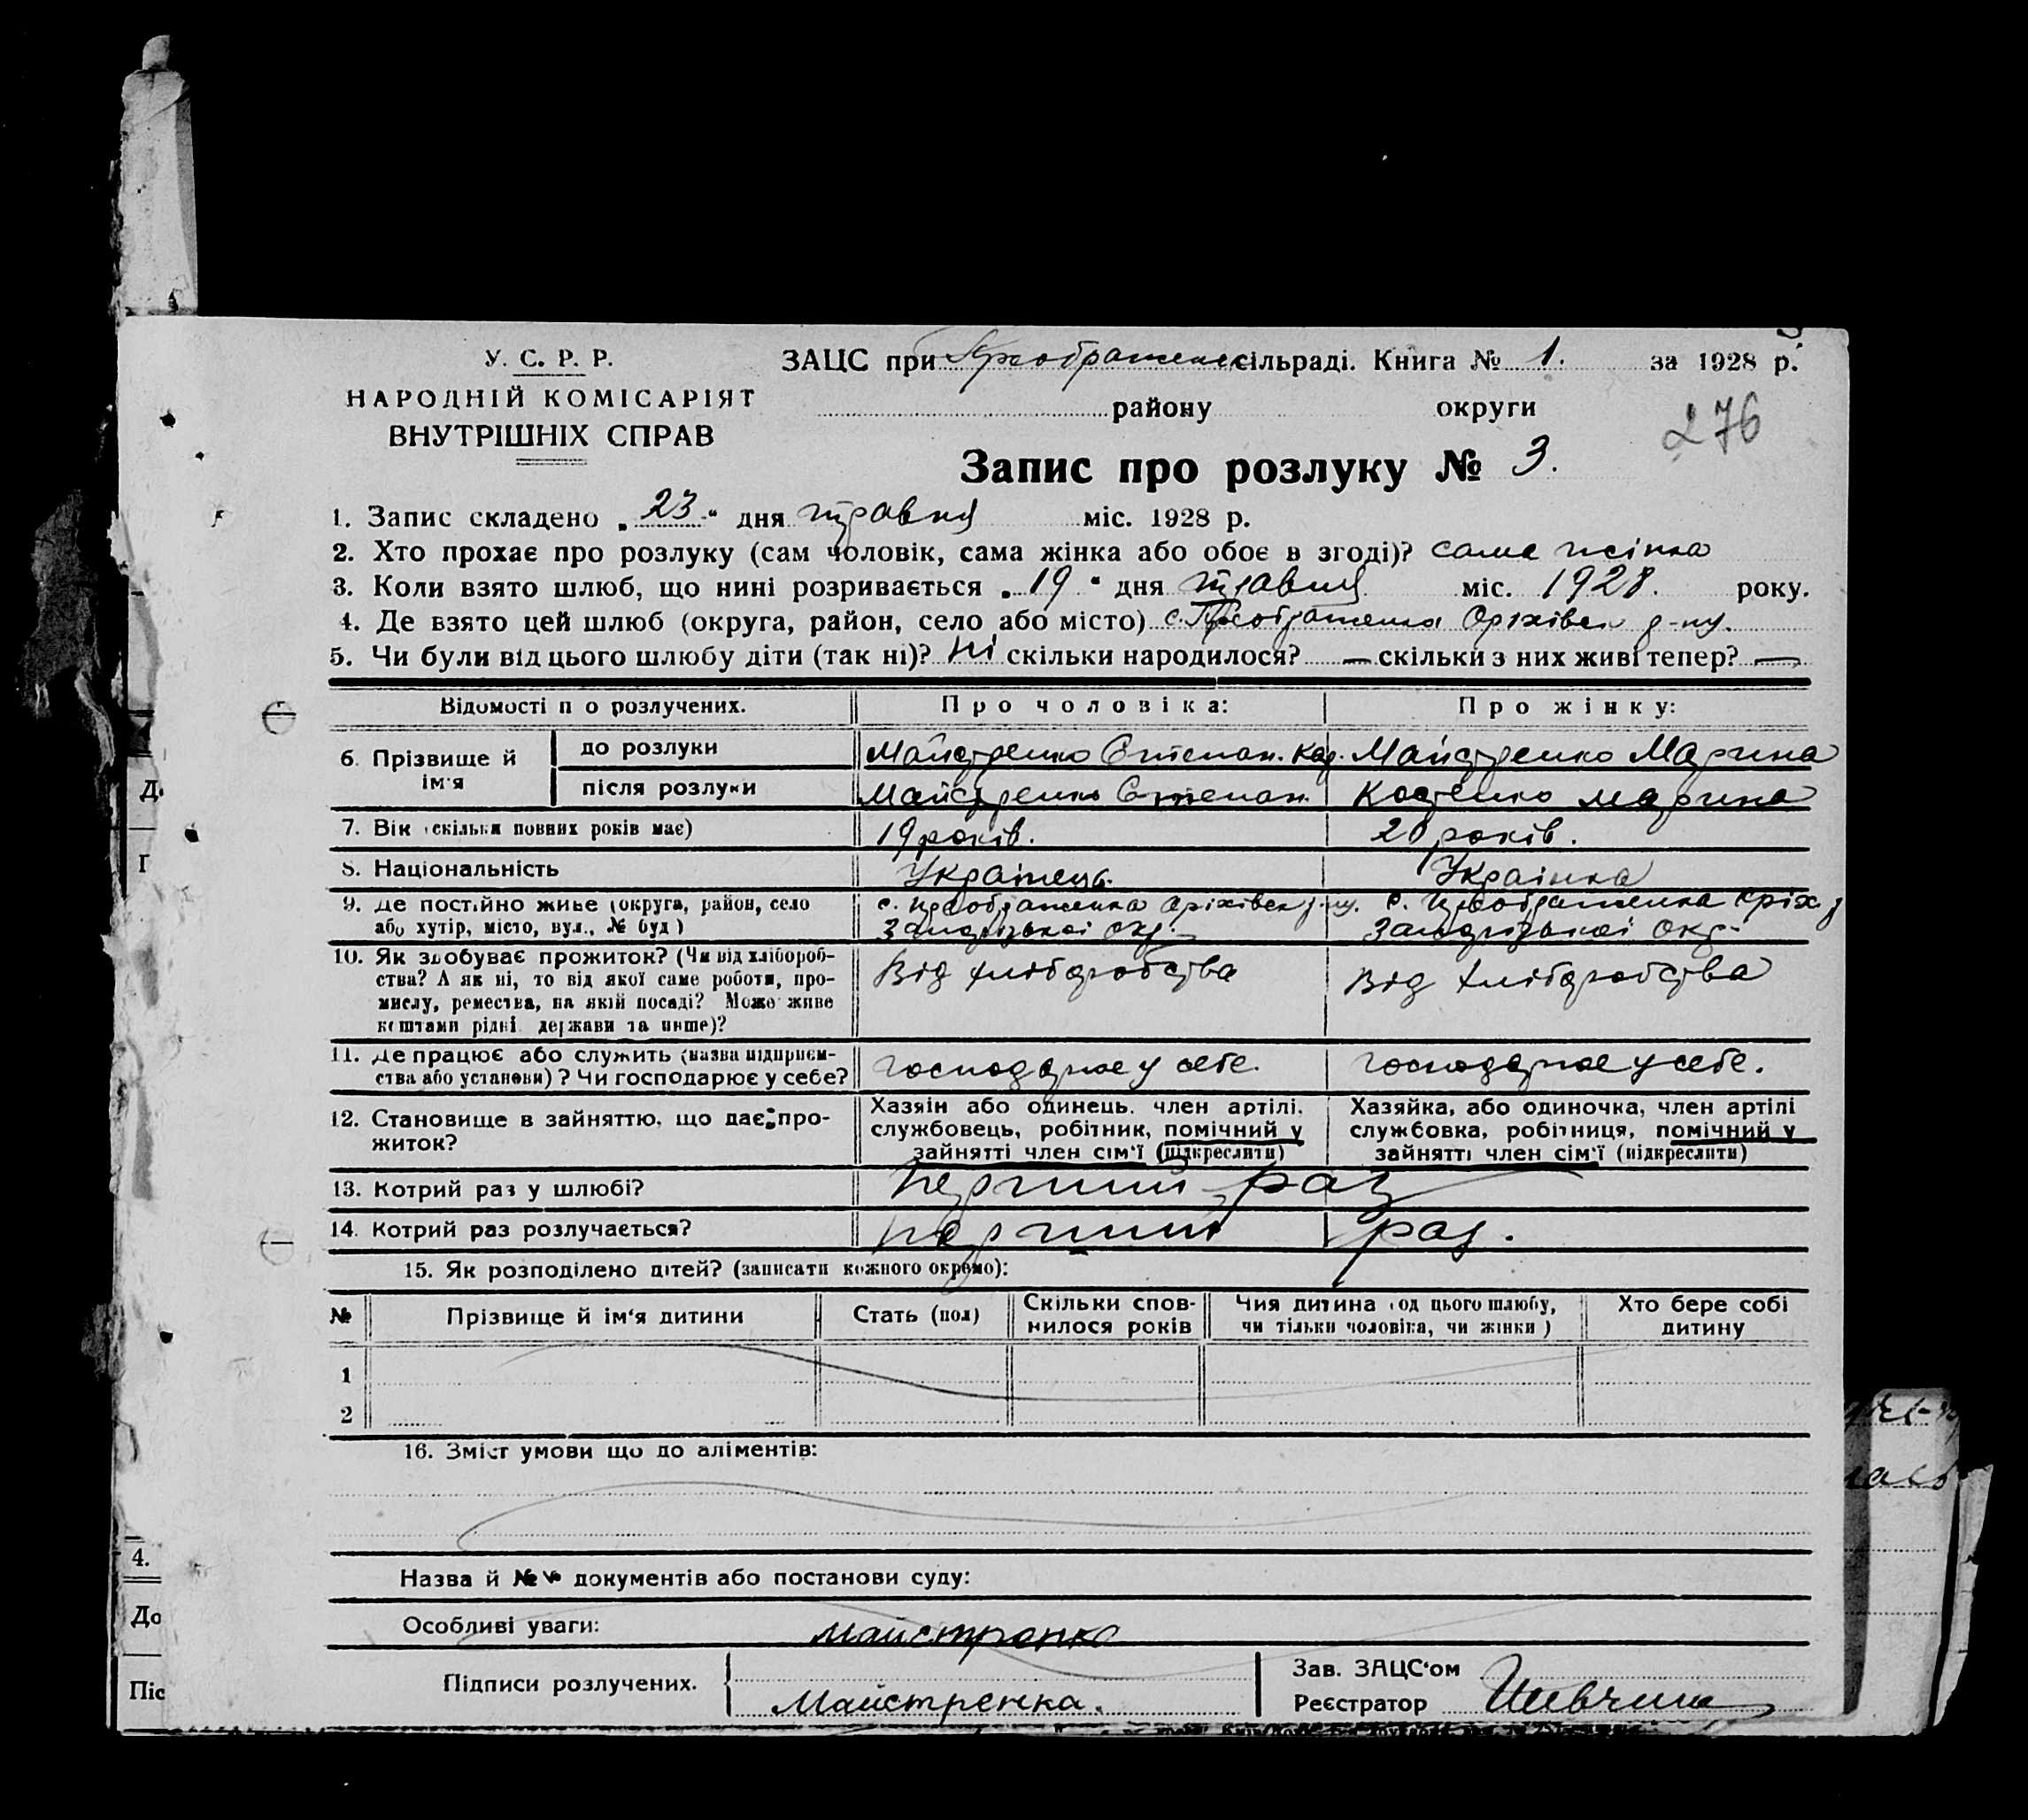 У. С. Р. Р.
НАРОДНІЙ КОМІСАРІЯТ
ВНУТРІШНІХ СПРАВ
ЗАЦС при Преображенс сільраді. Книга № 1. за 1928 р.
району округи
276
Запис про розлуку № 3.
1. Запис складено „23" дня травня міс. 1928 р.
2. Хто прохає про розлуку (сам чоловік, сама жінка або обоє в згоді)? сама жінка
3. Коли взято шлюб, що нині розривається „19" дня травня міс. 1928. року.
4. Де взято цей шлюб (округа, район, село або місто) с. Преображенка Оріхівськ р-ну.
5. Чи були від цього шлюбу діти (так ні)? Ні скільки народилося? — скільки з них живі тепер? —
Відомості п о розлучених. Про чоловіка: Про жінку:
6. Прізвище й ім'я до розлуки Майстренко Степан. Майстренко Марина
після розлуки Майстренко Степан. Костенко Марина
7. Вік (скільки повних років має) 19 років. 20 років.
8. Національність Українець. Українка
9. Де постійно живе (округа, район, село с. Преображенка Оріхівськ р-ну. с. Преображенка Оріх. р
або хутір, місто, вул., № буд) Запорізької окр. Запорізької окр.
10. Як здобуває прожиток? (Чи від хлібороб- Від хліборобства Від хліборобства
ства? А як ні, то від якої саме роботи, про-
мислу, ремества, на якій посаді? Може живе
коштами рідні держави та инше)?
11. Де працює або служить (назва підприєм- господарює у себе. господарює у себе.
ства або установи)? Чи господарює у себе?
12. Становище в зайняттю, що дає про- Хазяїн або одинець, член артілі, Хазяйка, або одиночка, член артілі
житок? службовець, робітник, помічний у службовка, робітниця, помічний у
зайнятті член сім'ї (підкреслити) зайнятті член сім'ї (підкреслити)
13. Котрий раз у шлюбі? перший раз
14. Котрий раз розлучається? перший раз.
15. Як розподілено дітей? (записати кожного окремо):
№ Прізвище й ім'я дитини Стать (пол) Скільки спов- Чия дитина (од цього шлюбу, Хто бере собі
нилося років чи тільки чоловіка, чи жінки) дитину
1
2
16. Зміст умови що до аліментів:
Назва й №№ документів або постанови суду:
Особливі уваги:
Майстренко
Підписи розлучених. Зав. ЗАЦС'ом
Майстренка. Реєстратор
4.
До
Піс